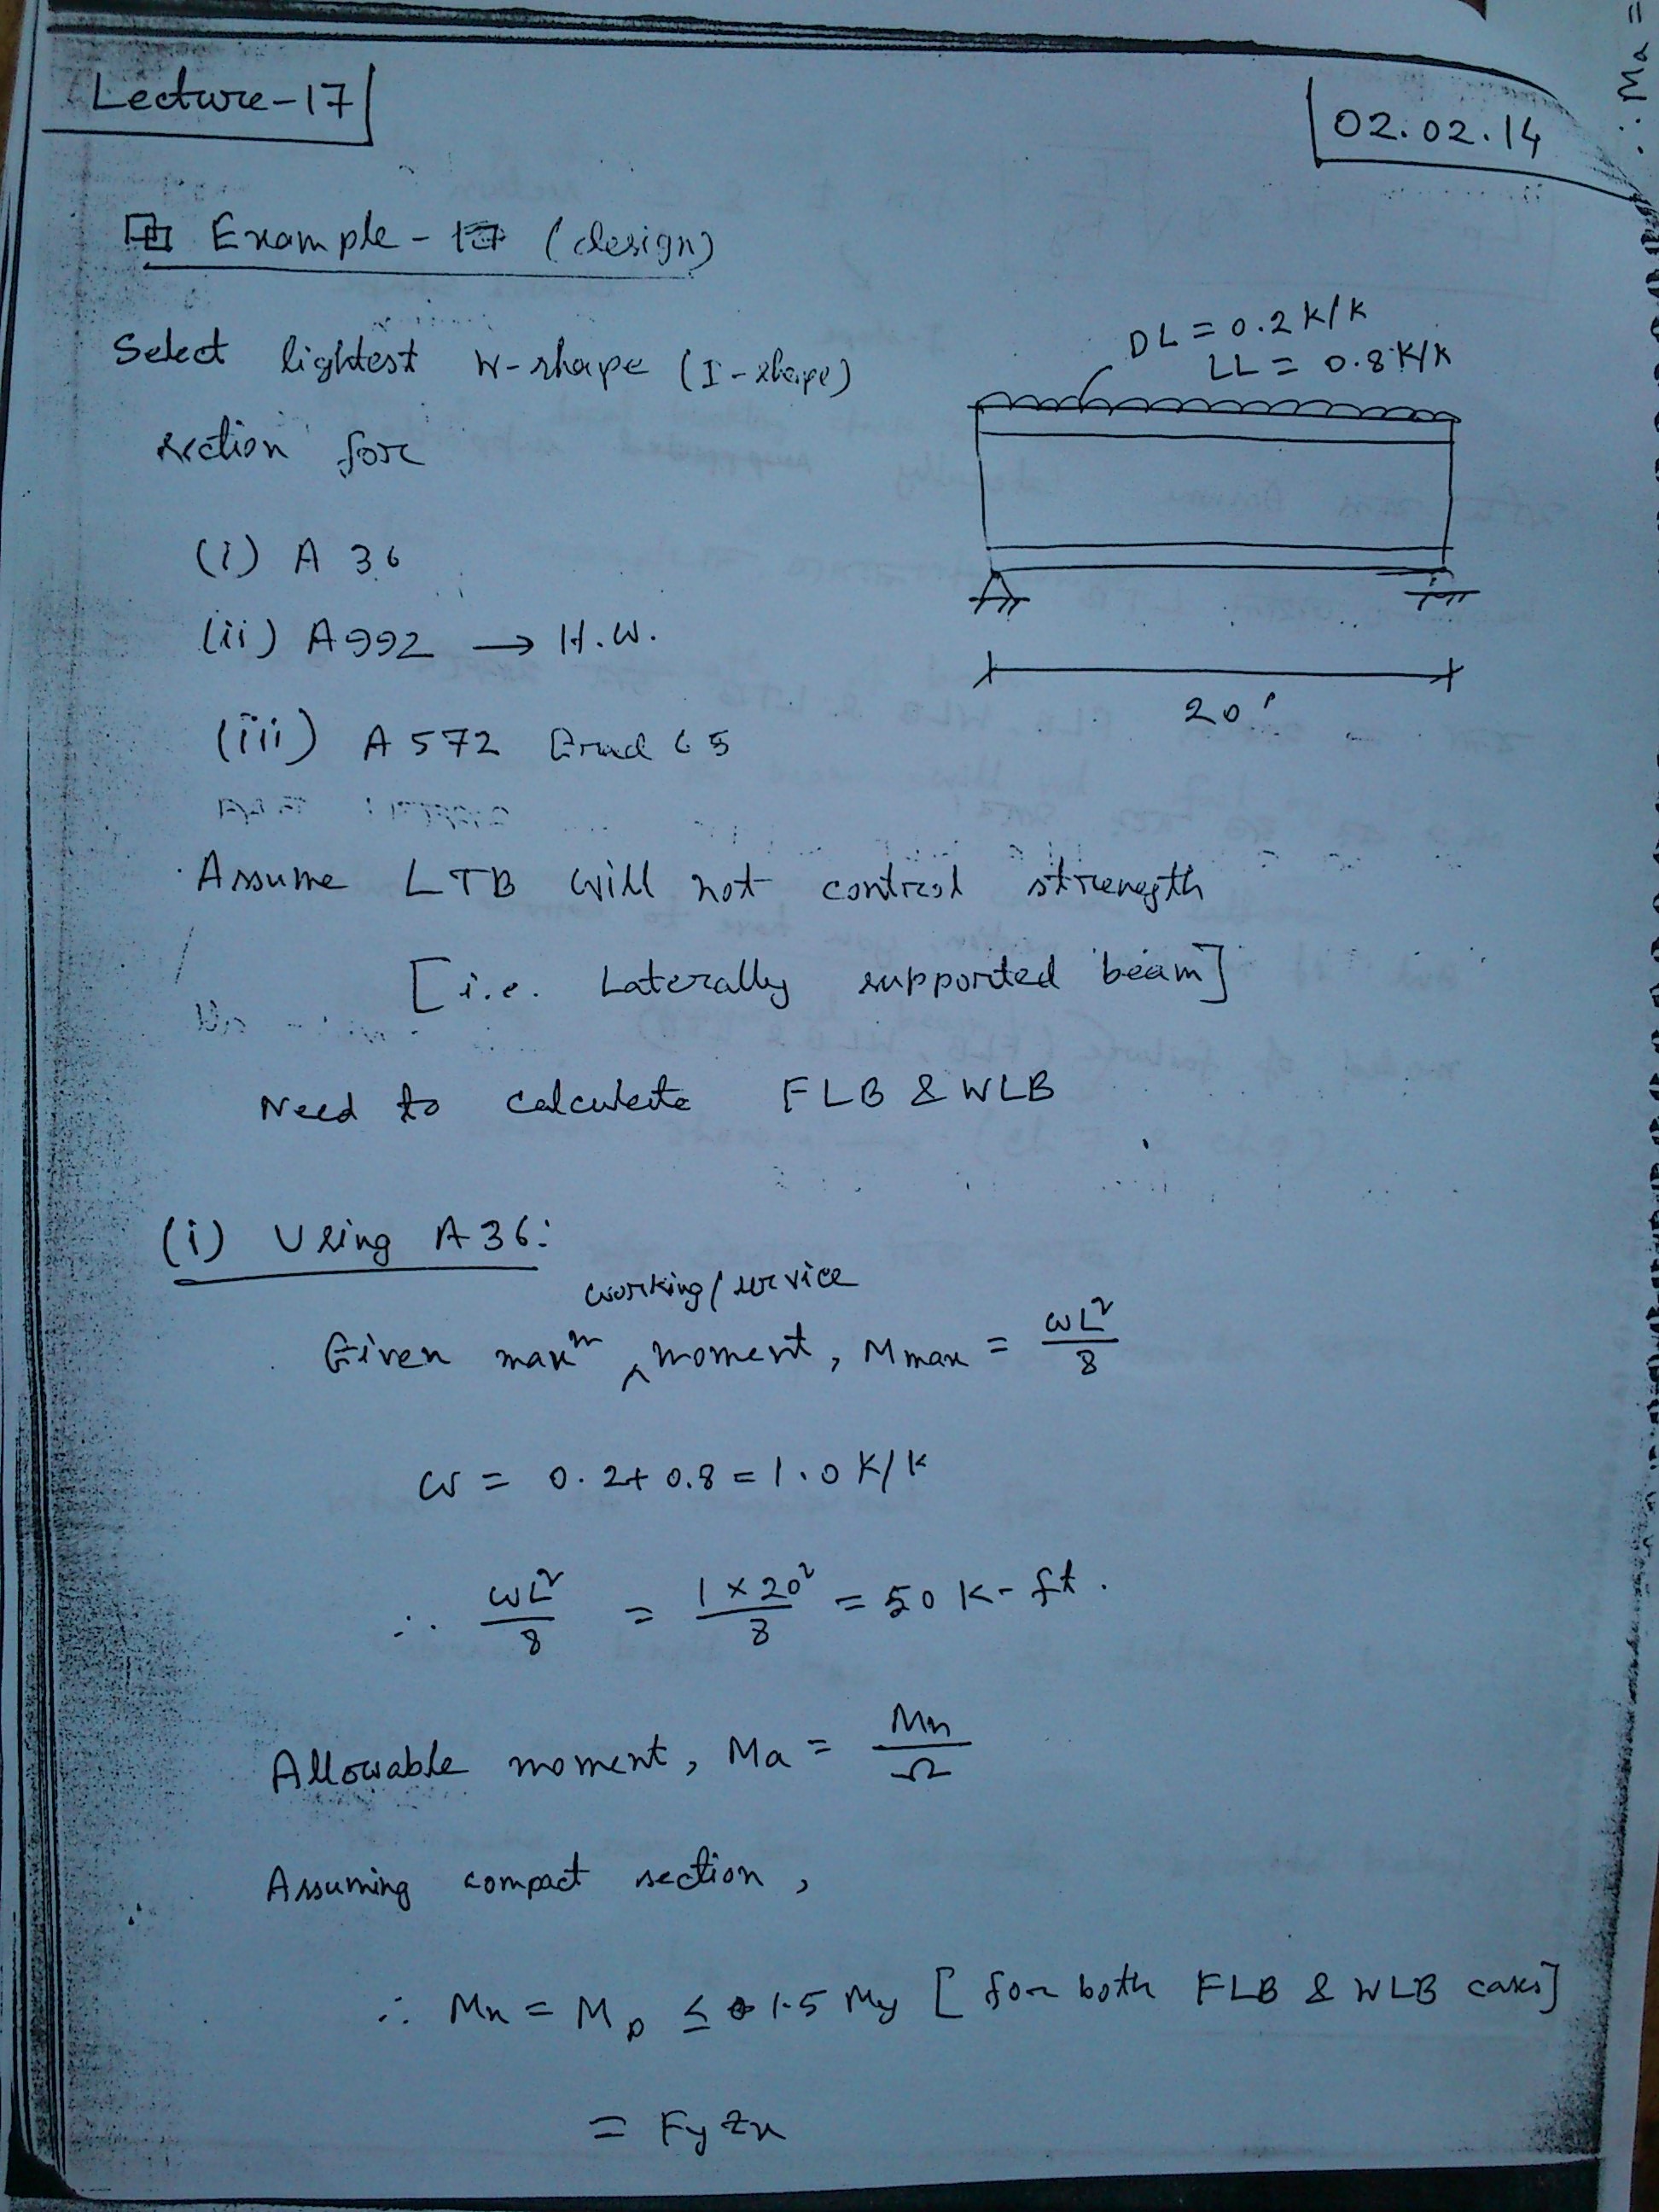 Lecture-17
02.02.14
Example - 17 (design)
Select lightest W-shape (I-shape)
section for
DL = 0.2 K/K
LL = 0.8 K/K
20'
(i) A 36
(ii) A992 → H.W.
(iii) A 572 Grad 65
Assume LTB will not control strength
[i.e. Laterally supported beam]
Need to calculate FLB & WLB
(i) Using A36:
working/service
Given maxᵐ ^ moment, Mmax = wL²/8
w = 0.2+0.8 = 1.0 K/K
∴ wL²/8 = 1×20²/8 = 50 K-ft.
Allowable moment, Ma = Mn/Ω
Assuming compact section,
∴ Mn = Mp ≤ 1.5 My [for both FLB & WLB cases]
= Fy Zx
∴ Ma =